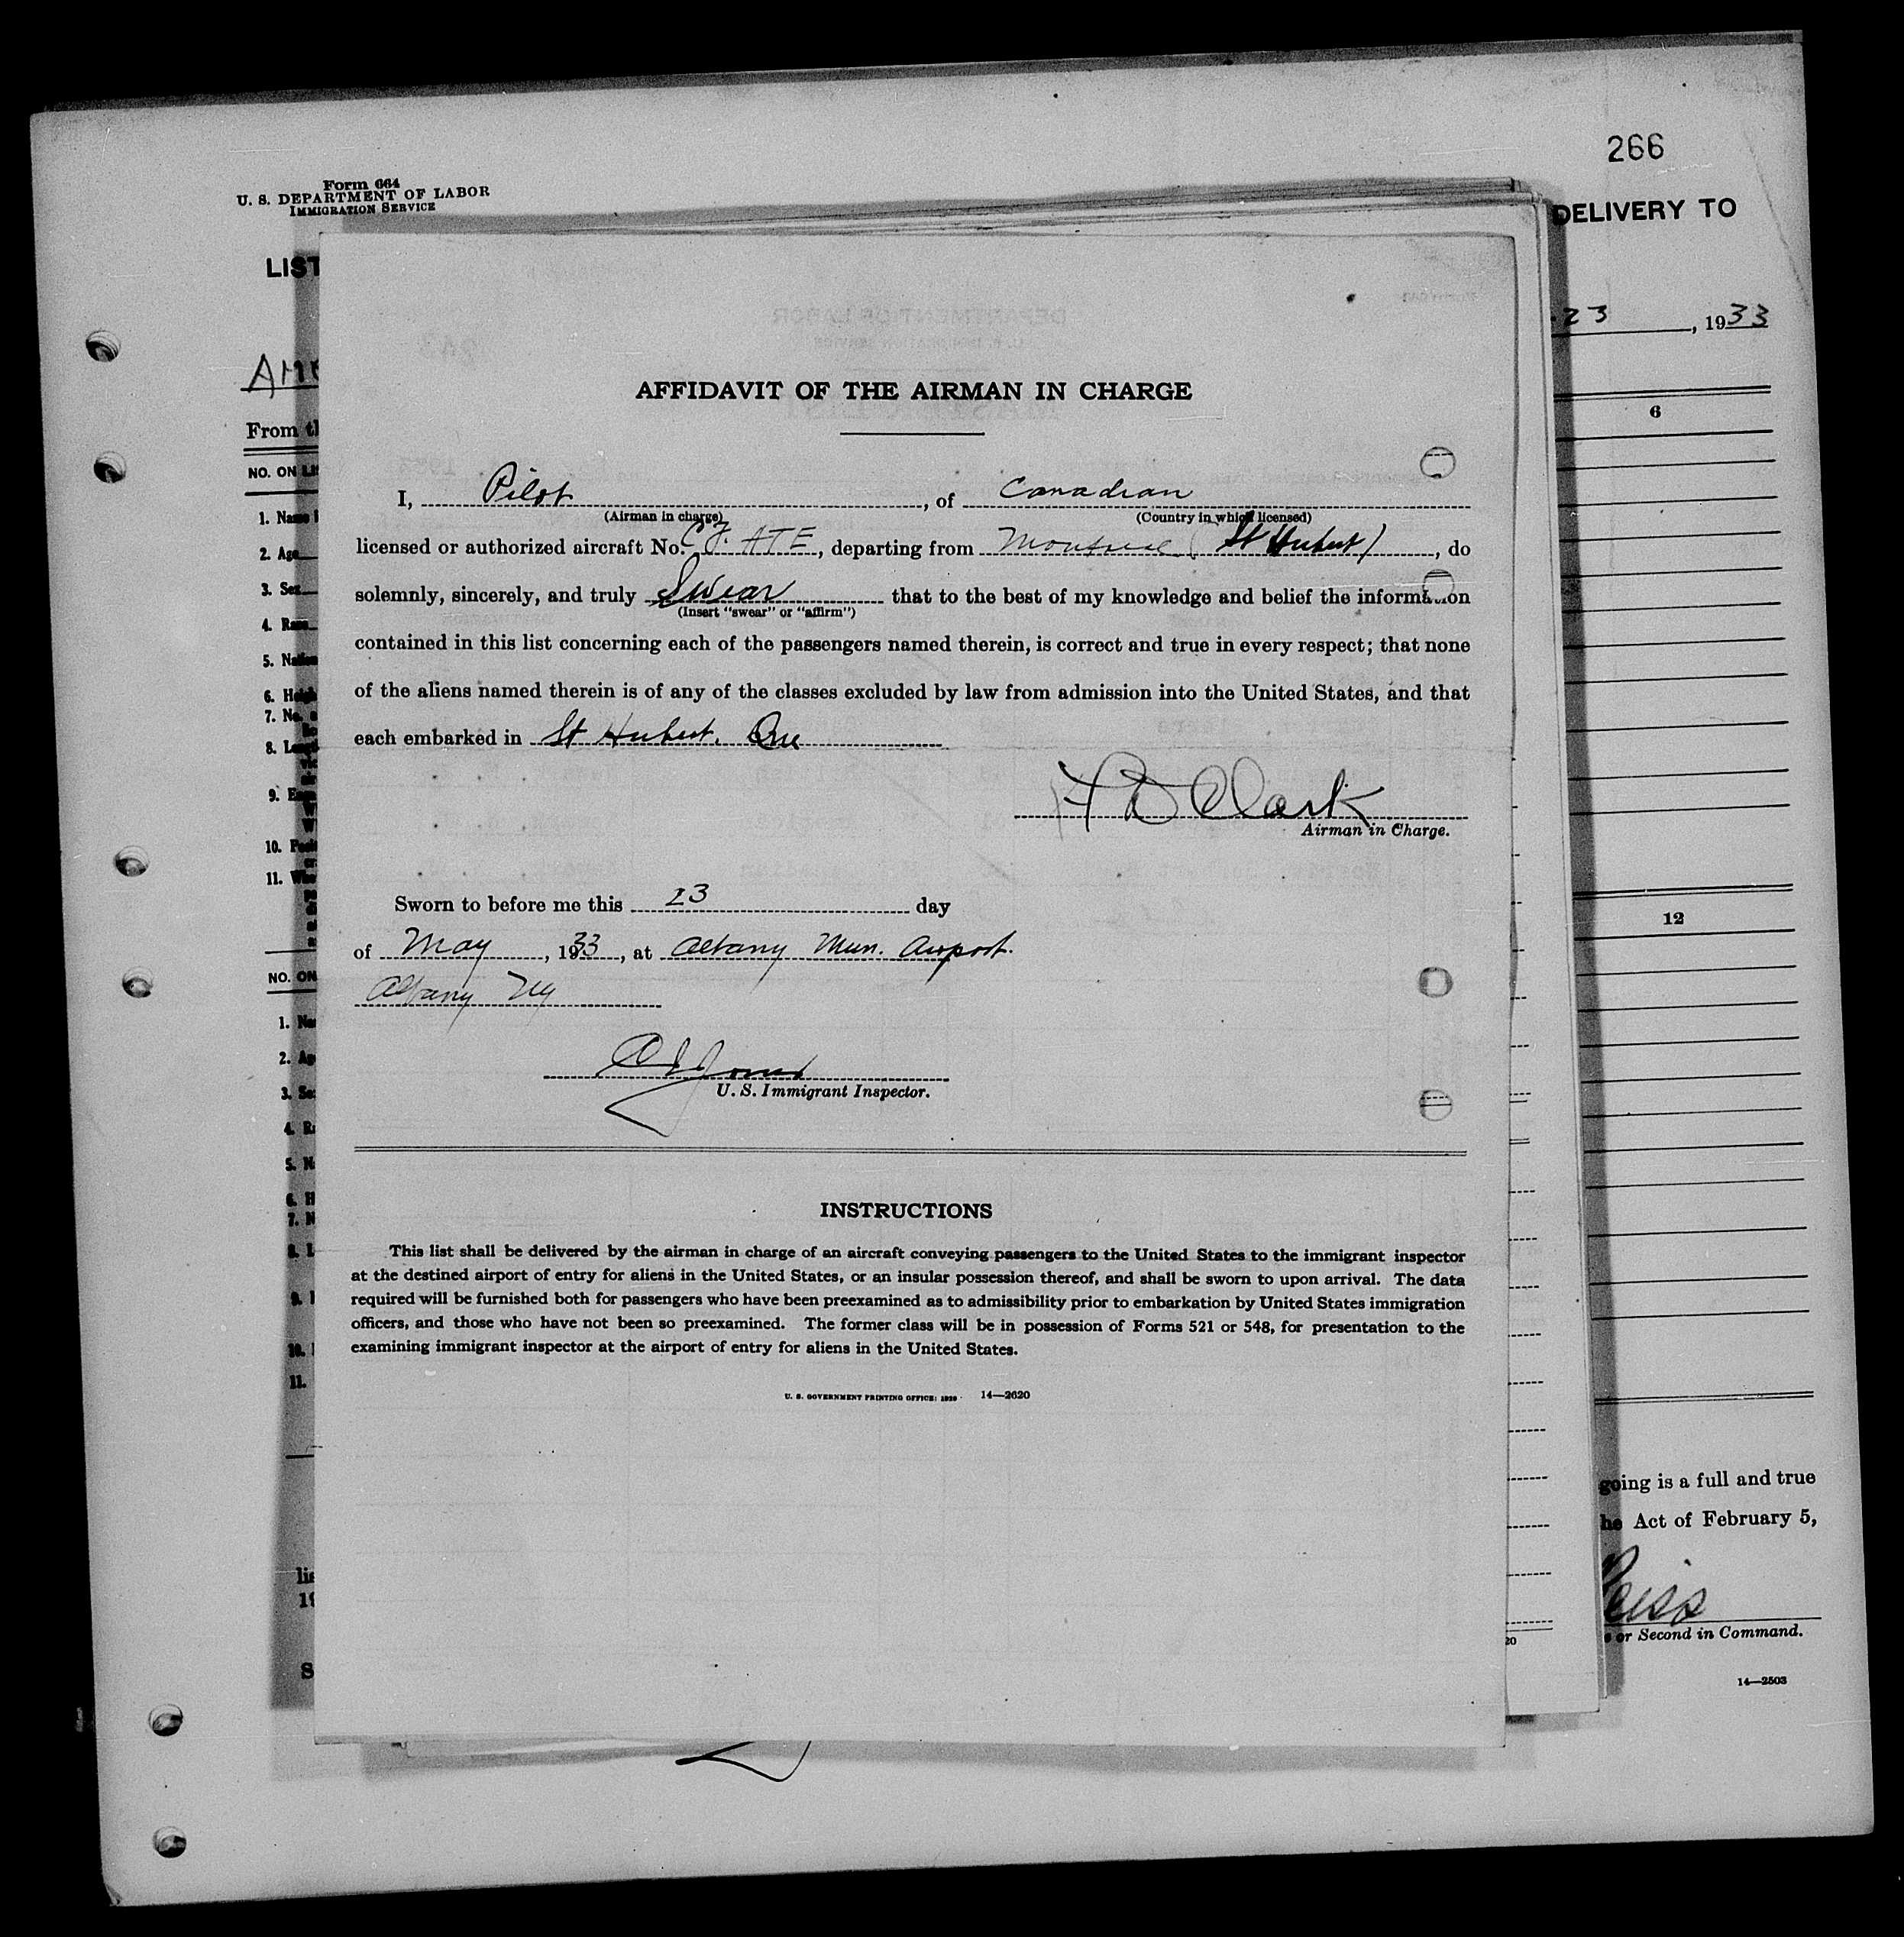 266
Form 664
U. S. DEPARTMENT OF LABOR
IMMIGRATION SERVICE
DELIVERY TO
LIST
23, 1933
From
6
NO. ON
AFFIDAVIT OF THE AIRMAN IN CHARGE
I, Pilot, of Canadian
(Airman in charge) (Country in which licensed)
licensed or authorized aircraft No. CF. ATE, departing from Montreal (St Hubert), do
solemnly, sincerely, and truly Swear that to the best of my knowledge and belief the information
(Insert "swear" or "affirm")
contained in this list concerning each of the passengers named therein, is correct and true in every respect; that none
of the aliens named therein is of any of the classes excluded by law from admission into the United States, and that
each embarked in St Hubert. Que
Clark
Airman in Charge.
Sworn to before me this 23 day
of May, 1933, at Albany Mun. Airport.
Albany NY
U. S. Immigrant Inspector.
INSTRUCTIONS
This list shall be delivered by the airman in charge of an aircraft conveying passengers to the United States to the immigrant inspector
at the destined airport of entry for aliens in the United States, or an insular possession thereof, and shall be sworn to upon arrival. The data
required will be furnished both for passengers who have been preexamined as to admissibility prior to embarkation by United States immigration
officers, and those who have not been so preexamined. The former class will be in possession of Forms 521 or 548, for presentation to the
examining immigrant inspector at the airport of entry for aliens in the United States.
U. S. GOVERNMENT PRINTING OFFICE: 1929 14—2620
1.
2.
3.
4.
5.
6.
7.
8.
9.
10.
11.
12
NO. ON
1.
2.
3.
4.
5.
6.
7.
8.
9.
10.
11.
going is a full and true
Act of February 5,
or Second in Command.
14—2503